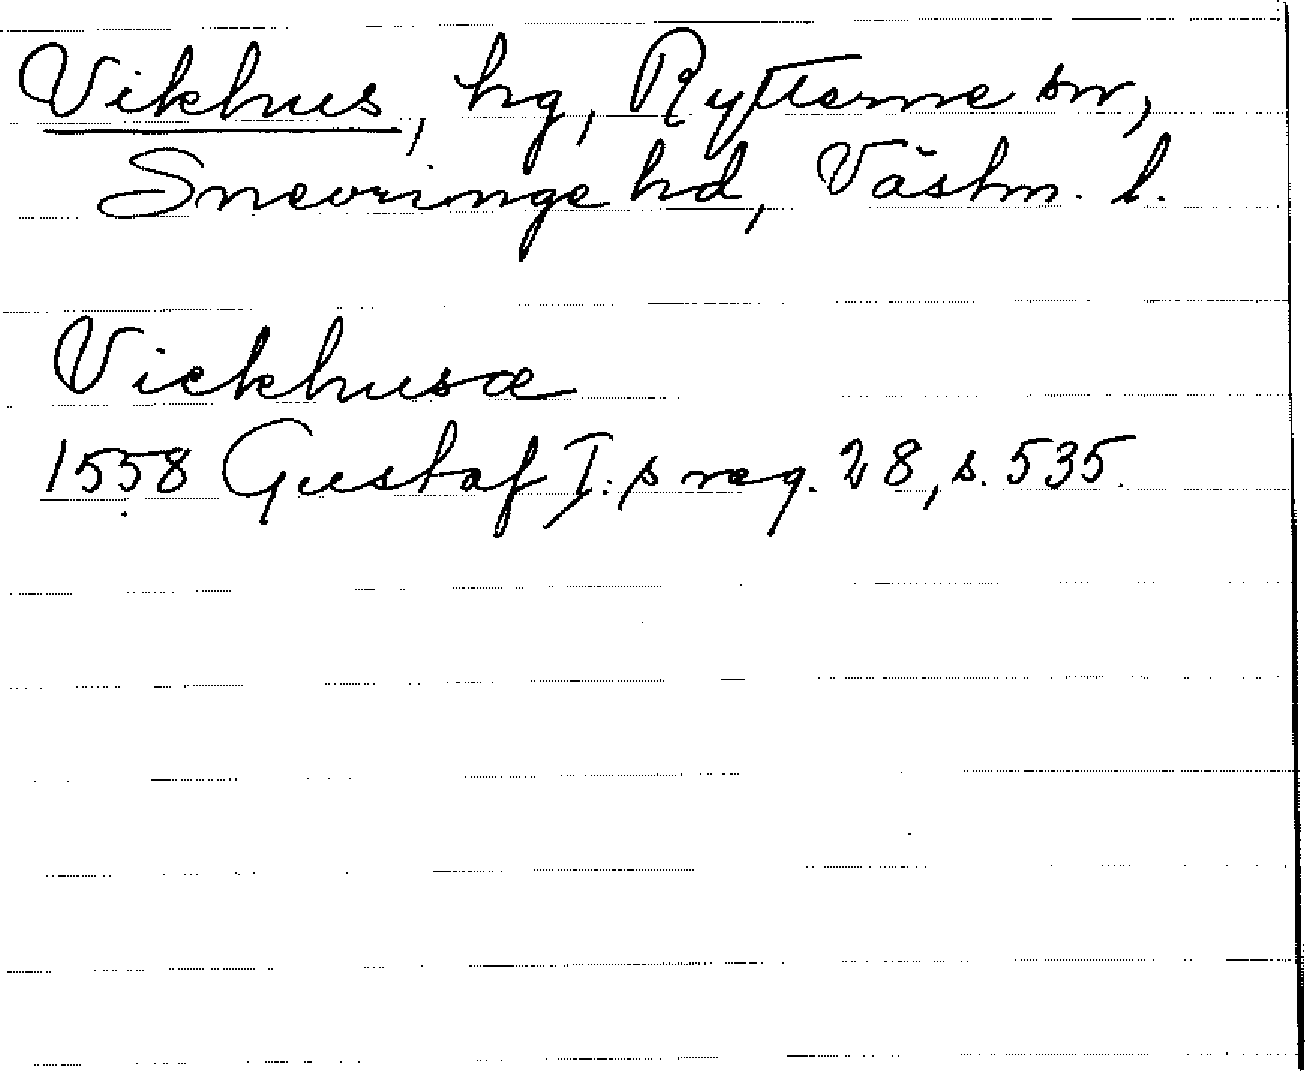 Vikhus, hg, Rytterne sn,
Snevringe hd, Västm. l.
Vickhusæ
1558 Gustaf I:s reg. 28, s. 535.